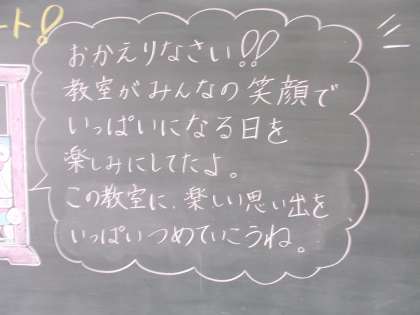 ート!
おかえりなさい!!
教室がみんなの笑顔で
いっぱいになる日を
楽しみにしてたよ。
この教室に、楽しい思い出を
いっぱいつめていこうね。